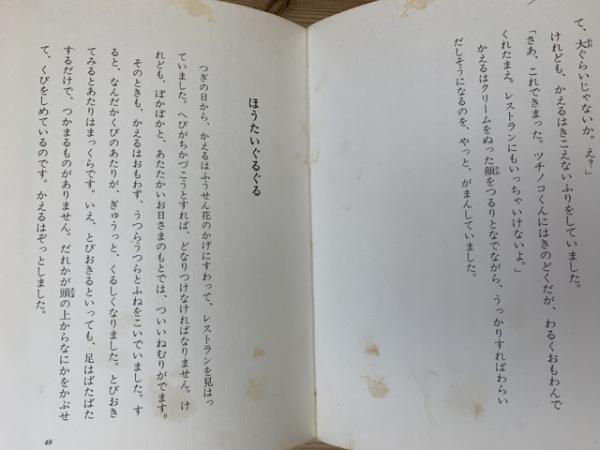 て、大ぐらいじゃないか。え？」
けれども、かえるはきこえないふりをしていました。
「さあ、これできまった。ツチノコくんにはきのどくだが、わるくおもわんで
くれたまえ。レストランにもいっちゃいけないよ。」
かえるはクリームをぬった顔をつるりとなでながら、うっかりすればわらい
だしそうになるのを、やっと、がまんしていました。
ほうたいぐるぐる
つぎの日から、かえるはふうせん花のかげにすわって、レストランを見はっ
ていました。へびがちかづこうとすれば、どなりつけなければなりません。け
れども、ぽかぽかと、あたたかいお日さまのもとでは、ついいねむりがでます。
そのときも、かえるはおもわず、うつらうつらとふねをこいでいました。す
ると、なんだかくびのあたりが、ぎゅうっと、くるしくなりました。とびおき
てみるとあたりはまっくらです。いえ、とびおきるといっても、足はばたばた
するだけで、つかまるものがありません。だれかが頭の上からなにかをかぶせ
て、くびをしめているのです。かえるはぞっとしました。
49